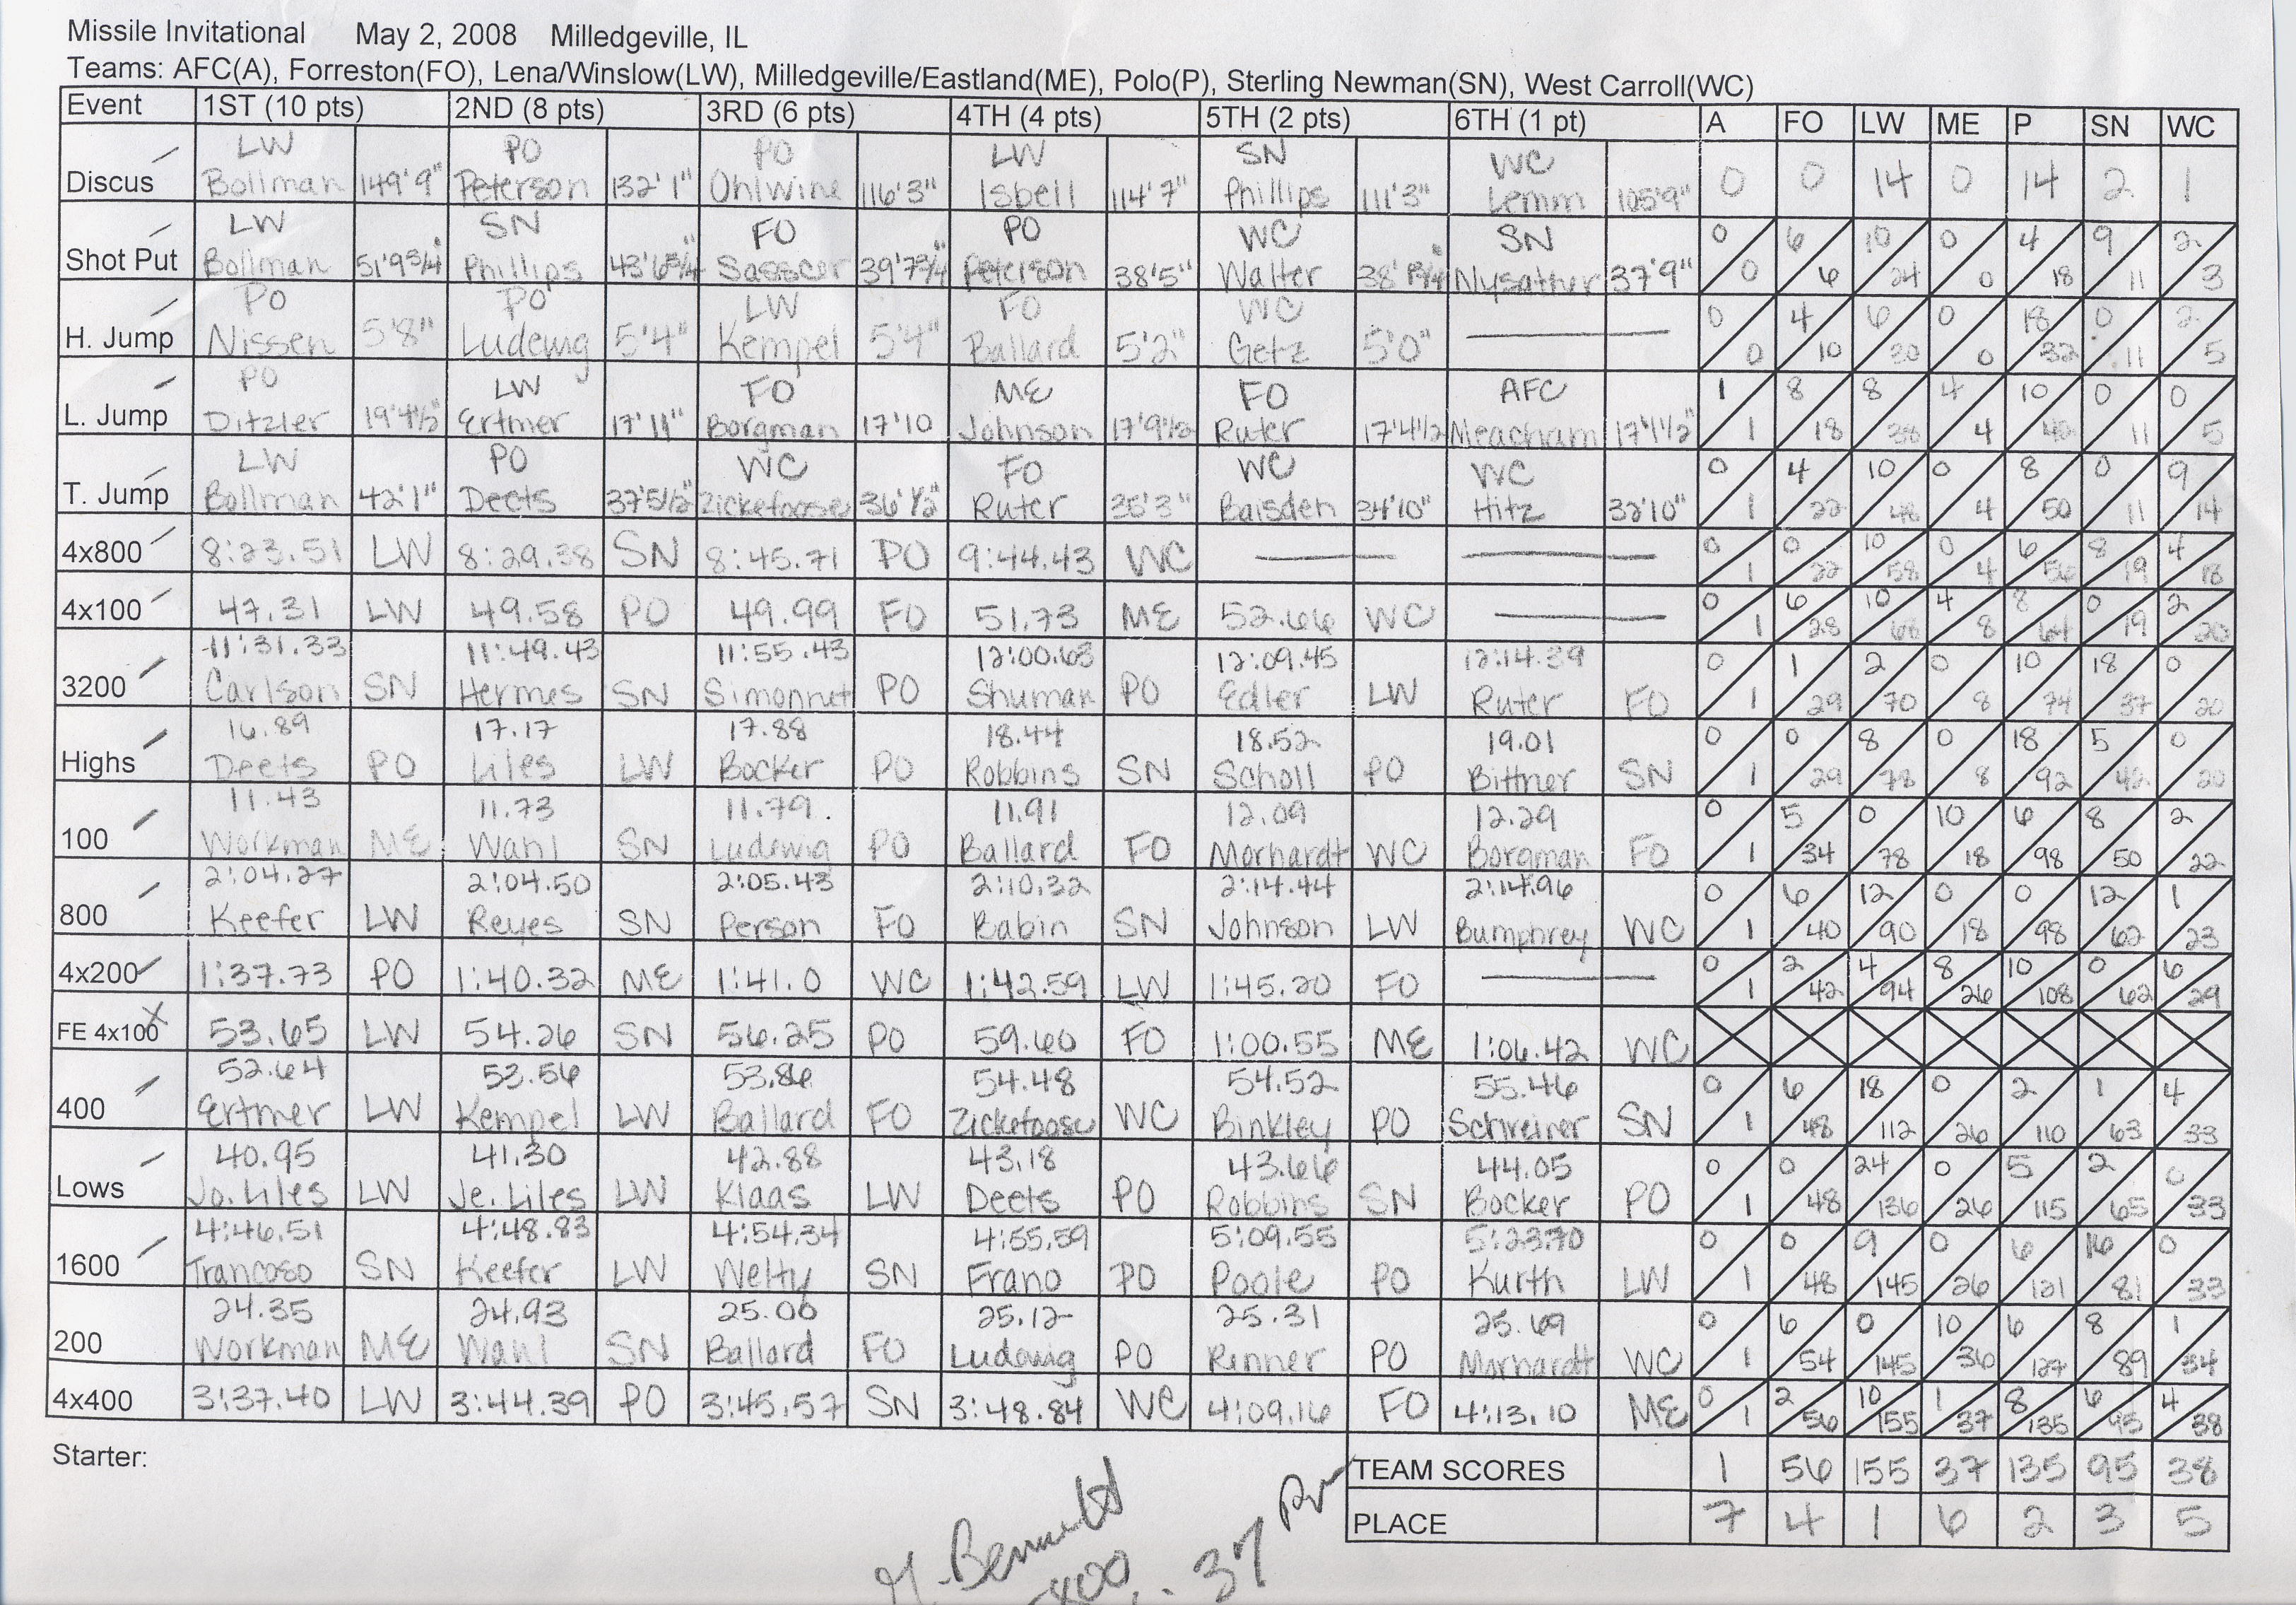 Missile Invitational May 2, 2008 Milledgeville, IL
Teams: AFC(A), Forreston(FO), Lena/Winslow(LW), Milledgeville/Eastland(ME), Polo(P), Sterling Newman(SN), West Carroll(WC)
Event 1ST (10 pts) 2ND (8 pts) 3RD (6 pts) 4TH (4 pts) 5TH (2 pts) 6TH (1 pt) A FO LW ME P SN WC
LW PO PO LW SN WC
Discus Bollman 149'9" Peterson 132'1" Ohlwine 116'3" Isbell 114'7" Phillips 111'3" Lemm 105'9" 0 0 14 0 14 2 1
LW SN FO PO WC SN 0 6 10 0 4 9 2
Shot Put Bollman 51'9 3/4" Phillips 43'6 3/4" Sasscer 39'7 3/4" Peterson 38'5" Walter Nysather 37'9" 0 6 24 0 18 11 3
PO PO LW FO WC 0 4 6 0 18 0 2
H. Jump Nissen 5'8" Ludewig 5'4" Kempel 5'4" Ballard 5'2" Getz 5'0" 0 10 30 0 32 11 5
PO LW FO ME FO AFC 1 8 8 4 10 0 0
L. Jump Ditzler 19'4½" Ertmer 17'11" Borgman 17'10 Johnson 17'9½ Ruter 17'4½ Meacham 17'1½" 1 18 38 4 42 11 5
LW PO WC FO WC WC 0 4 10 0 8 0 9
T. Jump Bollman 42'1" Deets 37'5½" Zickefoose 36'½" Ruter 35'3" Baisden 34'10" Hitz 32'10" 1 22 48 4 50 11 14
0 0 10 0 6 8 4
4x800 8:23.51 LW 8:29.38 SN 8:45.71 PO 9:44.43 WC 1 22 58 4 56 19 18
0 6 10 4 8 0 2
4x100 47.31 LW 49.58 PO 49.99 FO 51.73 ME 52.66 WC 1 28 68 8 64 19 20
11:31.33 11:49.43 11:55.43 12:00.63 12:09.45 12:14.39 0 1 2 0 10 18 0
3200 Carlson SN Hermes SN Simonnet PO Shuman PO Edler LW Ruter FO 1 29 70 8 74 37 20
16.89 17.17 17.88 18.44 18.52 19.01 0 0 8 0 18 5 0
Highs Deets PO Liles LW Bocker PO Robbins SN Scholl PO Bittner SN 1 29 78 8 92 42 20
11.43 11.73 11.79 11.91 12.09 12.29 0 5 0 10 6 8 2
100 Workman ME Wahl SN Ludewig PO Ballard FO Morhardt WC Borgman FO 1 34 78 18 98 50 22
2:04.27 2:04.50 2:05.43 2:10.32 2:14.44 2:14.96 0 6 12 0 0 12 1
800 Keefer LW Reyes SN Person FO Babin SN Johnson LW Bumphrey WC 1 40 90 18 98 62 23
0 2 4 8 10 0 6
4x200 1:37.73 PO 1:40.32 ME 1:41.0 WC 1:42.59 LW 1:45.20 FO 1 42 94 26 108 62 29
FE 4x100 X 53.65 LW 54.26 SN 56.25 PO 59.60 FO 1:00.55 ME 1:06.42 WC
52.64 53.56 53.86 54.48 54.52 55.46 0 6 18 0 2 1 4
400 Ertmer LW Kempel LW Ballard FO Zickefoose WC Binkley PO Schreiner SN 1 48 112 26 110 63 33
40.95 41.30 42.88 43.18 43.66 44.05 0 0 24 0 5 2 0
Lows Jo. Liles LW Je. Liles LW Klaas LW Deets PO Robbins SN Bocker PO 1 48 136 26 115 65 33
4:46.51 4:48.83 4:54.34 4:55.59 5:09.55 5:23.70 0 0 9 0 6 16 0
1600 Trancoso SN Keefer LW Welty SN Frano PO Poole PO Kurth LW 1 48 145 26 121 81 33
24.35 24.93 25.06 25.12 25.31 25.69 0 6 0 10 6 8 1
200 Workman ME Wahl SN Ballard FO Ludewig PO Renner PO Morhardt WC 1 54 145 36 127 89 34
0 2 10 1 8 6 4
4x400 3:37.40 LW 3:44.39 PO 3:45.57 SN 3:48.84 WC 4:09.16 FO 4:13.10 ME 1 56 155 37 135 95 38
Starter:
TEAM SCORES 1 56 155 37 135 95 38
PLACE 7 4 1 6 2 3 5
M. Bennett
37